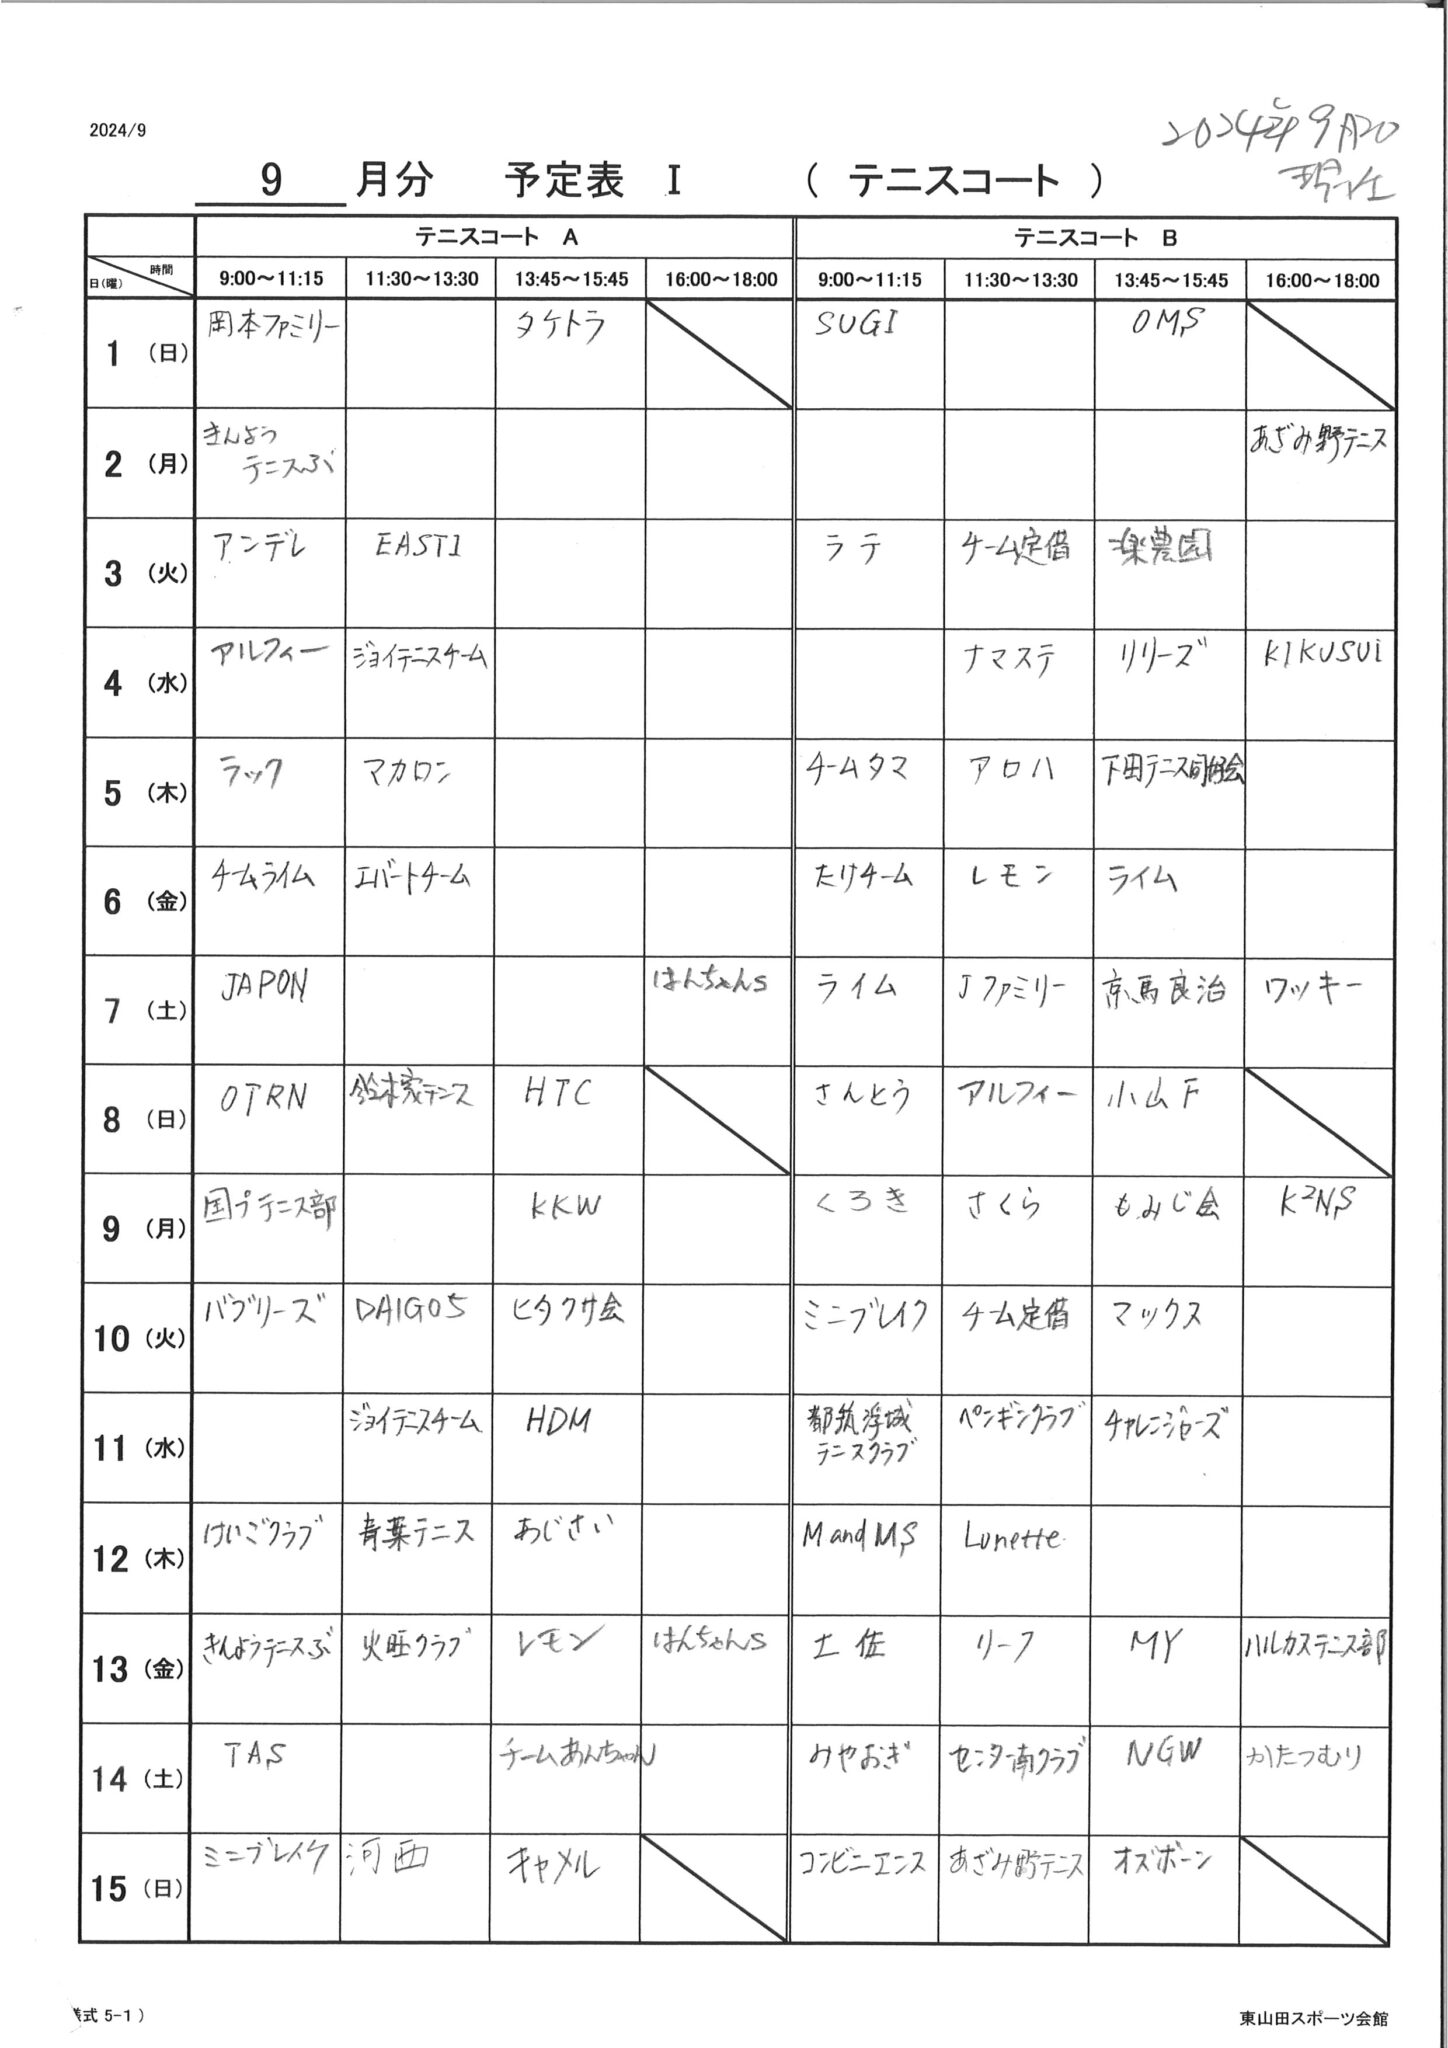 2024/9
2024年9月20
現在
9 月分 予定表 Ⅰ ( テニスコート )
テニスコート A テニスコート B
時間
日(曜)
9:00～11:15 11:30～13:30 13:45～15:45 16:00～18:00 9:00～11:15 11:30～13:30 13:45～15:45 16:00～18:00
1 (日) 岡本ファミリー タケトラ SUGI OMS
2 (月) きんよう
テニスぶ あざみ野テニス
3 (火) アンデレ EAST1 ラテ チーム定借 楽農園
4 (水) アルフィー ジョイテニスチーム ナマステ リリーズ KIKUSUi
5 (木) ラック マカロン チームタマ アロハ 下田テニス同好会
6 (金) チームライム エバートチーム たけチーム レモン ライム
7 (土) JAPON はんちゃんS ライム Jファミリー 京馬良治 ワッキー
8 (日) OTRN 鈴木家テニス HTC さんとう アルフィー 小山F
9 (月) 国プテニス部 KKW くろき さくら もみじ会 K²NS
10 (火) バブリーズ DAIGO5 ヒタクサ会 ミニブレイク チーム定借 マックス
11 (水) ジョイテニスチーム HDM 都筑浮城
テニスクラブ ペンギンクラブ チャレンジャーズ
12 (木) けいごクラブ 青葉テニス あじさい M and MS Lunette
13 (金) きんようテニスぶ 火旺クラブ レモン はんちゃんS 土佐 リーフ MY ハルカステニス部
14 (土) TAS チームあんちゃん みやおぎ センター南クラブ NGW かたつむり
15 (日) ミニブレイク 河西 キャメル コンビニエンス あざみ野テニス オズボーン
式 5-1 )
東山田スポーツ会館